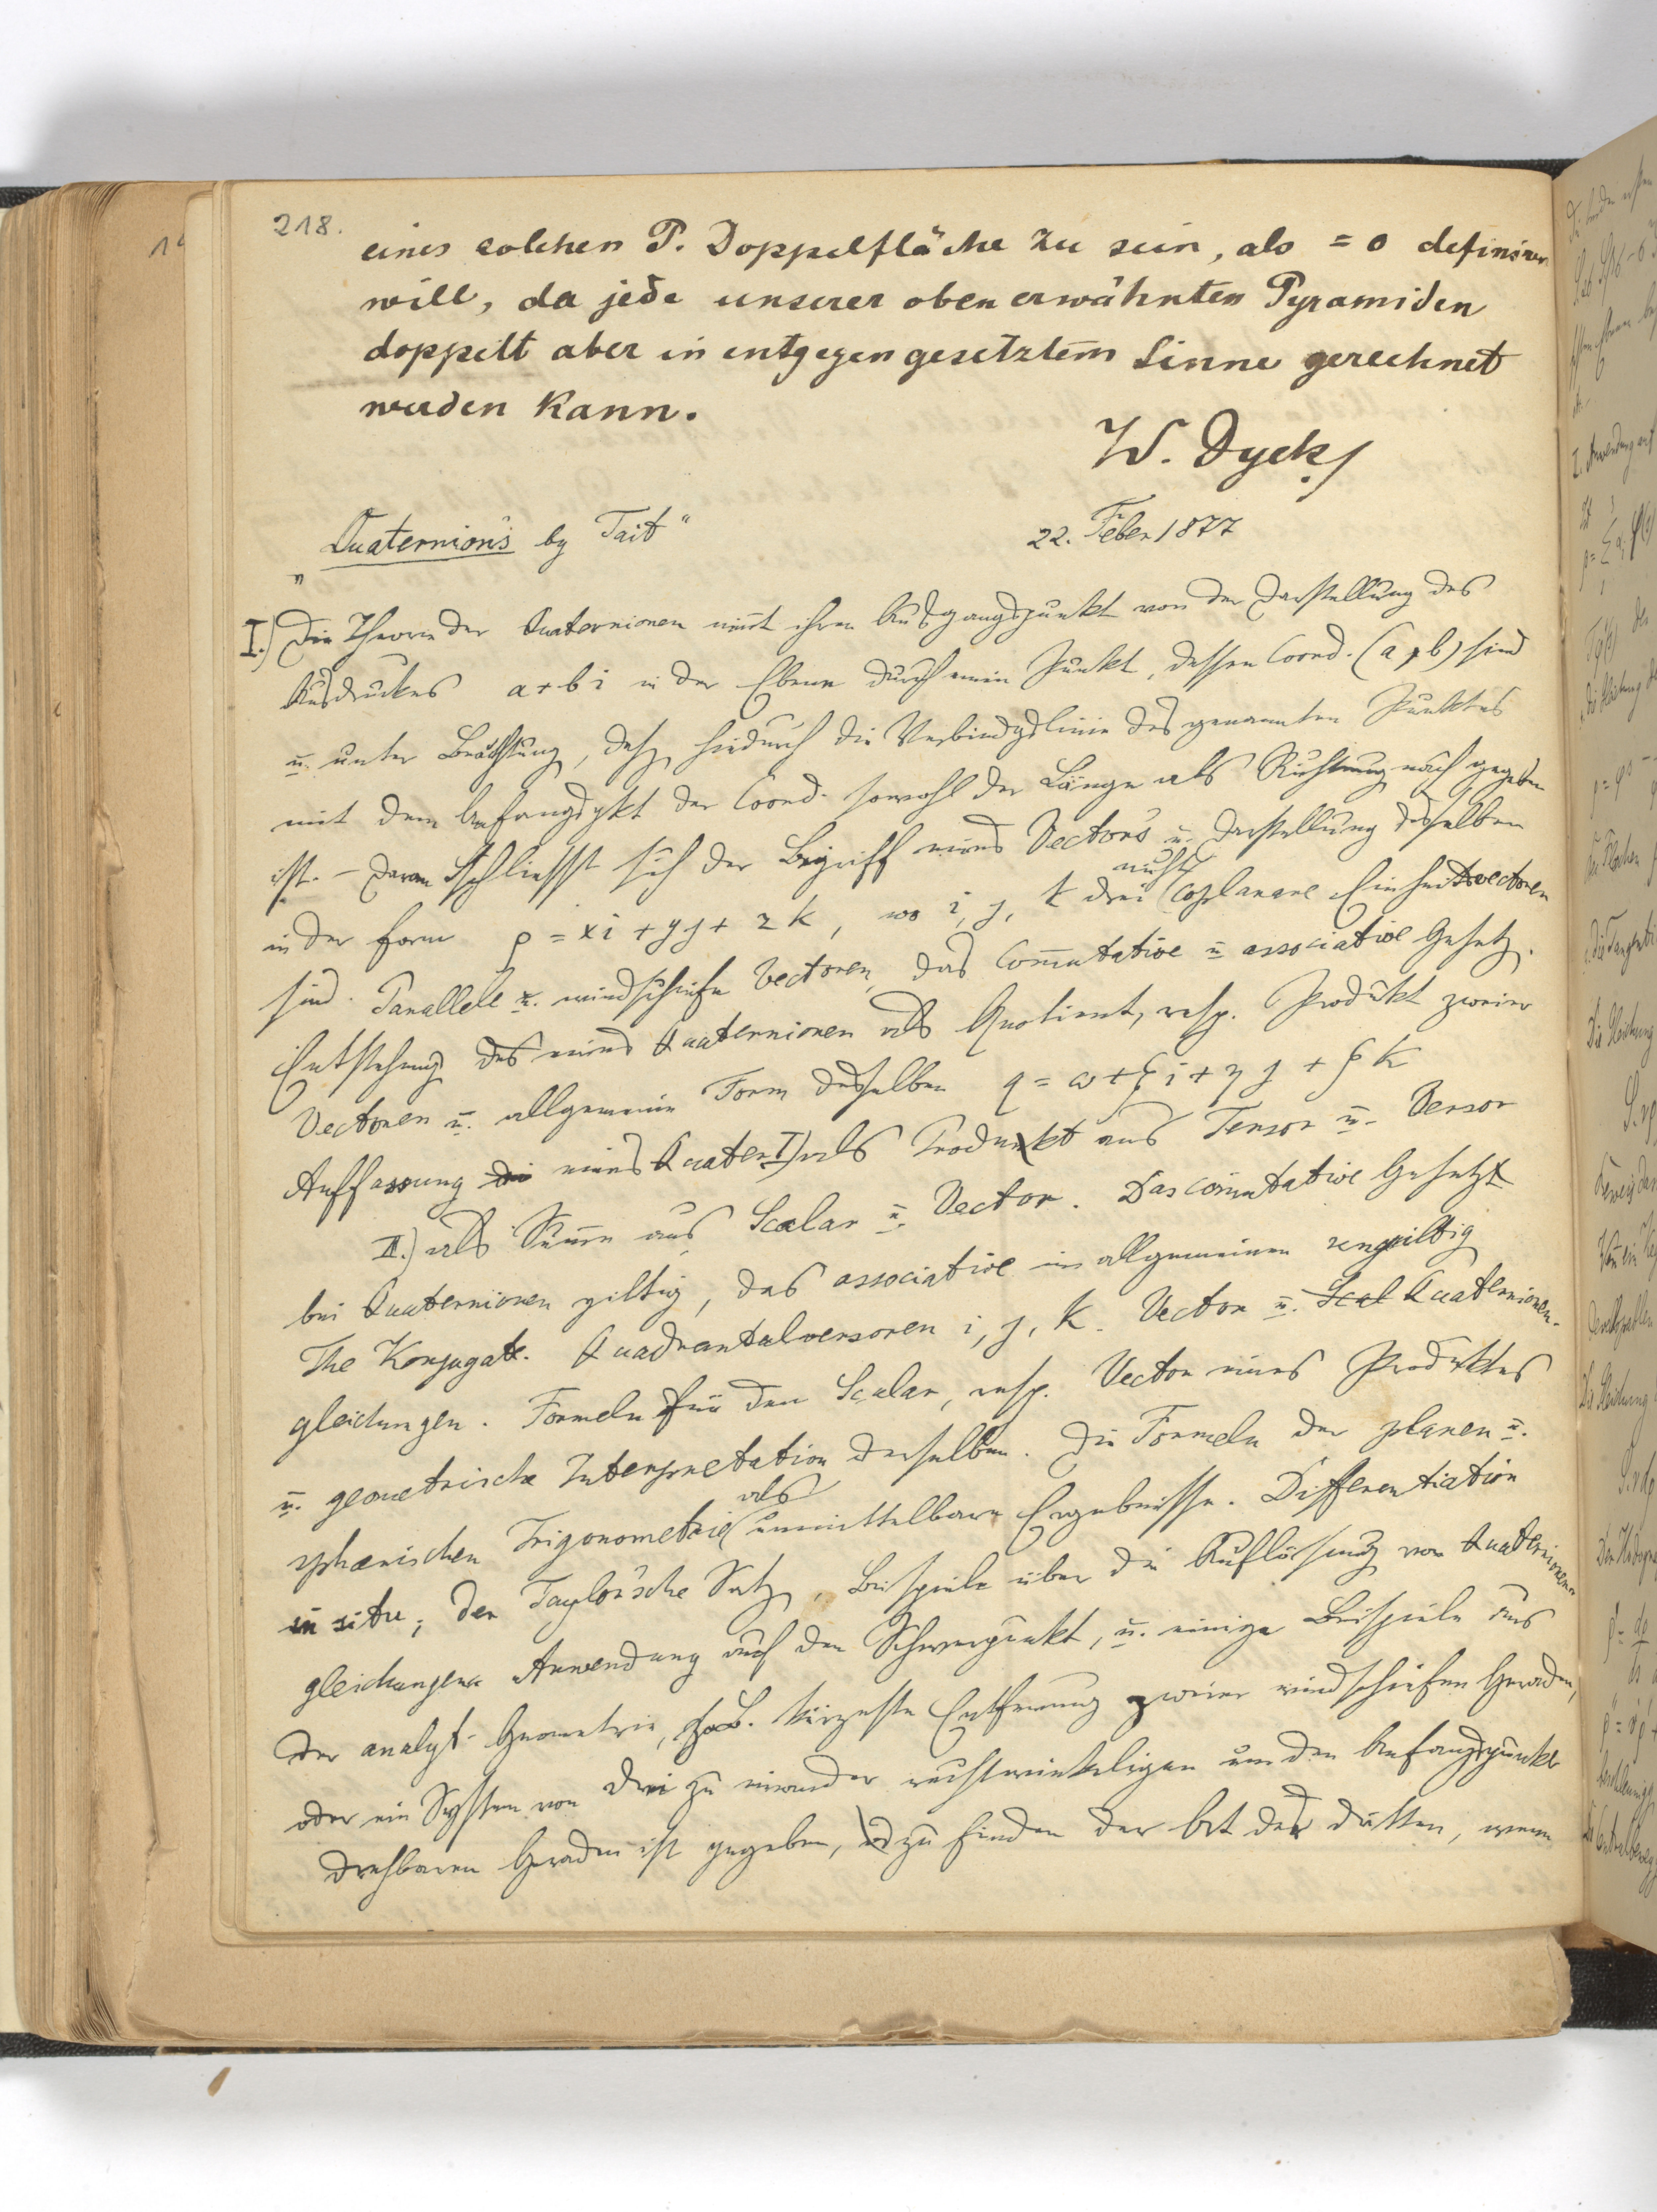 218.
eines solchen P. Doppelfläche zu sein, als = 0 definiren
will, da jede unserer oben erwähnten Pyramiden
doppelt aber in entgegengesetztem Sinne gerechnet
werden kann.
W. Dyck
„Quaternions by Tait“ 22. Feber 1877
I.) Die Theorie der Quaternionen nim̄t ihren Ausgangspunkt von der Darstellung des
Ausdruckes a + bi in der Ebene durch einen Punkt, dessen Coord. (a, b) sind
u. unter Beachtung, daß hiedurch die Verbindgslinie des genannten Punktes
mit dem Anfangspkt der Coord. sowohl der Länge als Richtung nach gegeben
ist. – Daran schliesst sich der Begriff eines Vectors u. Darstellung desselben
in der Form ρ = xi + yj + zk, wo i, j, k drei nicht coplanare Einheitsvectoren
sind. Parallele u. windschiefe Vectoren, das com̄utative u. associative Gesetz.
Entstehung des eines Quaternionen als Quotient, resp. Produkt zweier
Vectoren u. allgemeine Form desselben q = ω + ξi + ηj + ζk
Auffassung die eines Quater. I) als Produkt aus Tensor u. Versor
II.) als Sum̄e aus Scalar u. Vector. Das com̄utative Gesetz
bei Quaternionen giltig, das associative im allgemeinen ungiltig
The Konjugate. Quadrantalversoren i, j, k. Vector u. Scal Quaternionen-
gleichungen. Formeln für den Scalar, resp. Vector eines Produktes
u. geometrische Interpretation derselben. Die Formeln der planen u.
sphærischen Trigonometrie als unmittelbare Ergebnisse. Differentiation
in situ; der Taylor'sche Satz, Beispiele über die Auflösung von Quaternionen-
gleichungen Anwendung auf den Schwerpunkt, u. einige Beispiele aus
der analyt. Geometrie, z. B. kürzeste Entfernung zweier windschiefen Geraden,
oder ein System von drei zu einander rechtwinkeligen um den Anfangspunkt
drehbaren Geraden ist gegeben, zu finden der Ort der dritten, wenn